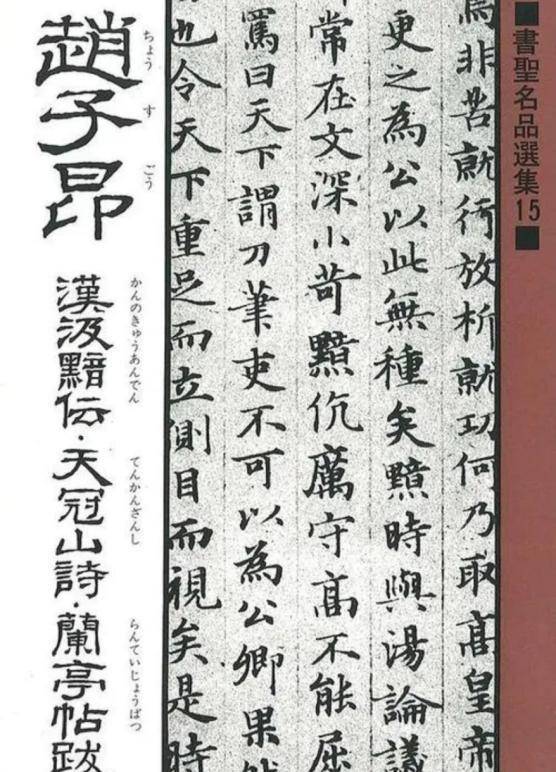 ■書聖名品選集15■
焉非苦就行放析就功何乃取高皇帝
更之為公以此無種矣黯時與湯論議
常在文深小苛黯伉厲守高不能屈
罵曰天下謂刀筆吏不可以為公卿果然
也令天下重足而立側目而視矣是時
ちょうすごう
趙子昂
かんのきゅうあんでん てんかんざんし らんていじょうばつ
漢汲黯伝・天冠山詩・蘭亭帖跋